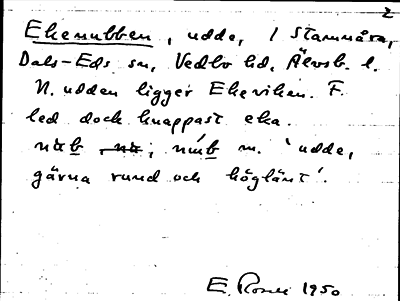 2
Ekenubben, udde, i Stamnåra,
Dals-Eds sn, Vedbo hd, Älvsb. l.
N. udden ligger Ekeviken. F.
led dock knappast eka.
nub m. 'udde,
gärna rund och höglänt'.
E. 1950